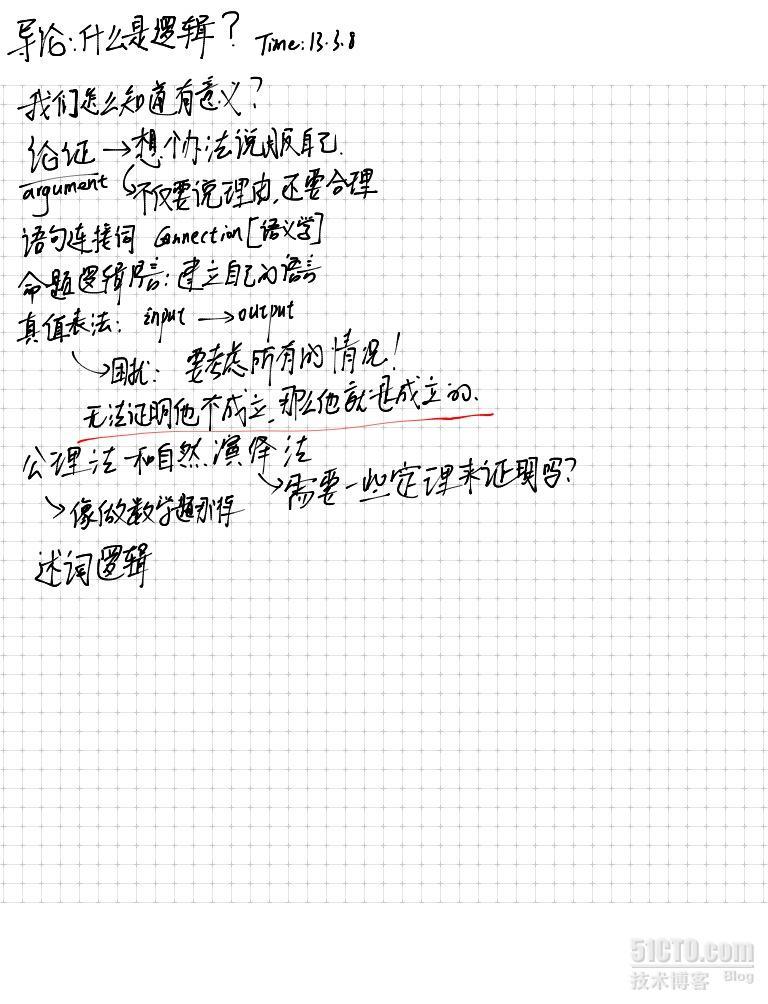 导论:什么是逻辑? Time:13.3.8
我们怎么知道有意义?
论证 →想个办法说服自己.
argument ↳不仅要说理由,还要合理
语句连接词 Connection[语义学]
命题逻辑语言:建立自己的语言
真值表法: input →output
↘困扰: 要考虑所有的情况!
无法证明他不成立,那么他就是成立的.
公理法和自然演绎法
↘需要一些定理来证明吗?
↘像做数学题那样
述词逻辑
51CTO.com
技术博客 Blog